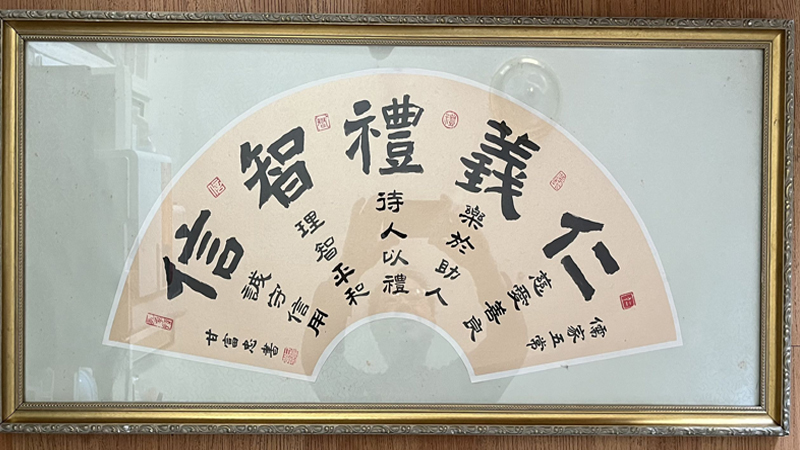 儒家五常
仁
慈愛善良
義
樂於助人
禮
待人以禮
智
理智平和
信
誠守信用
甘富忠書